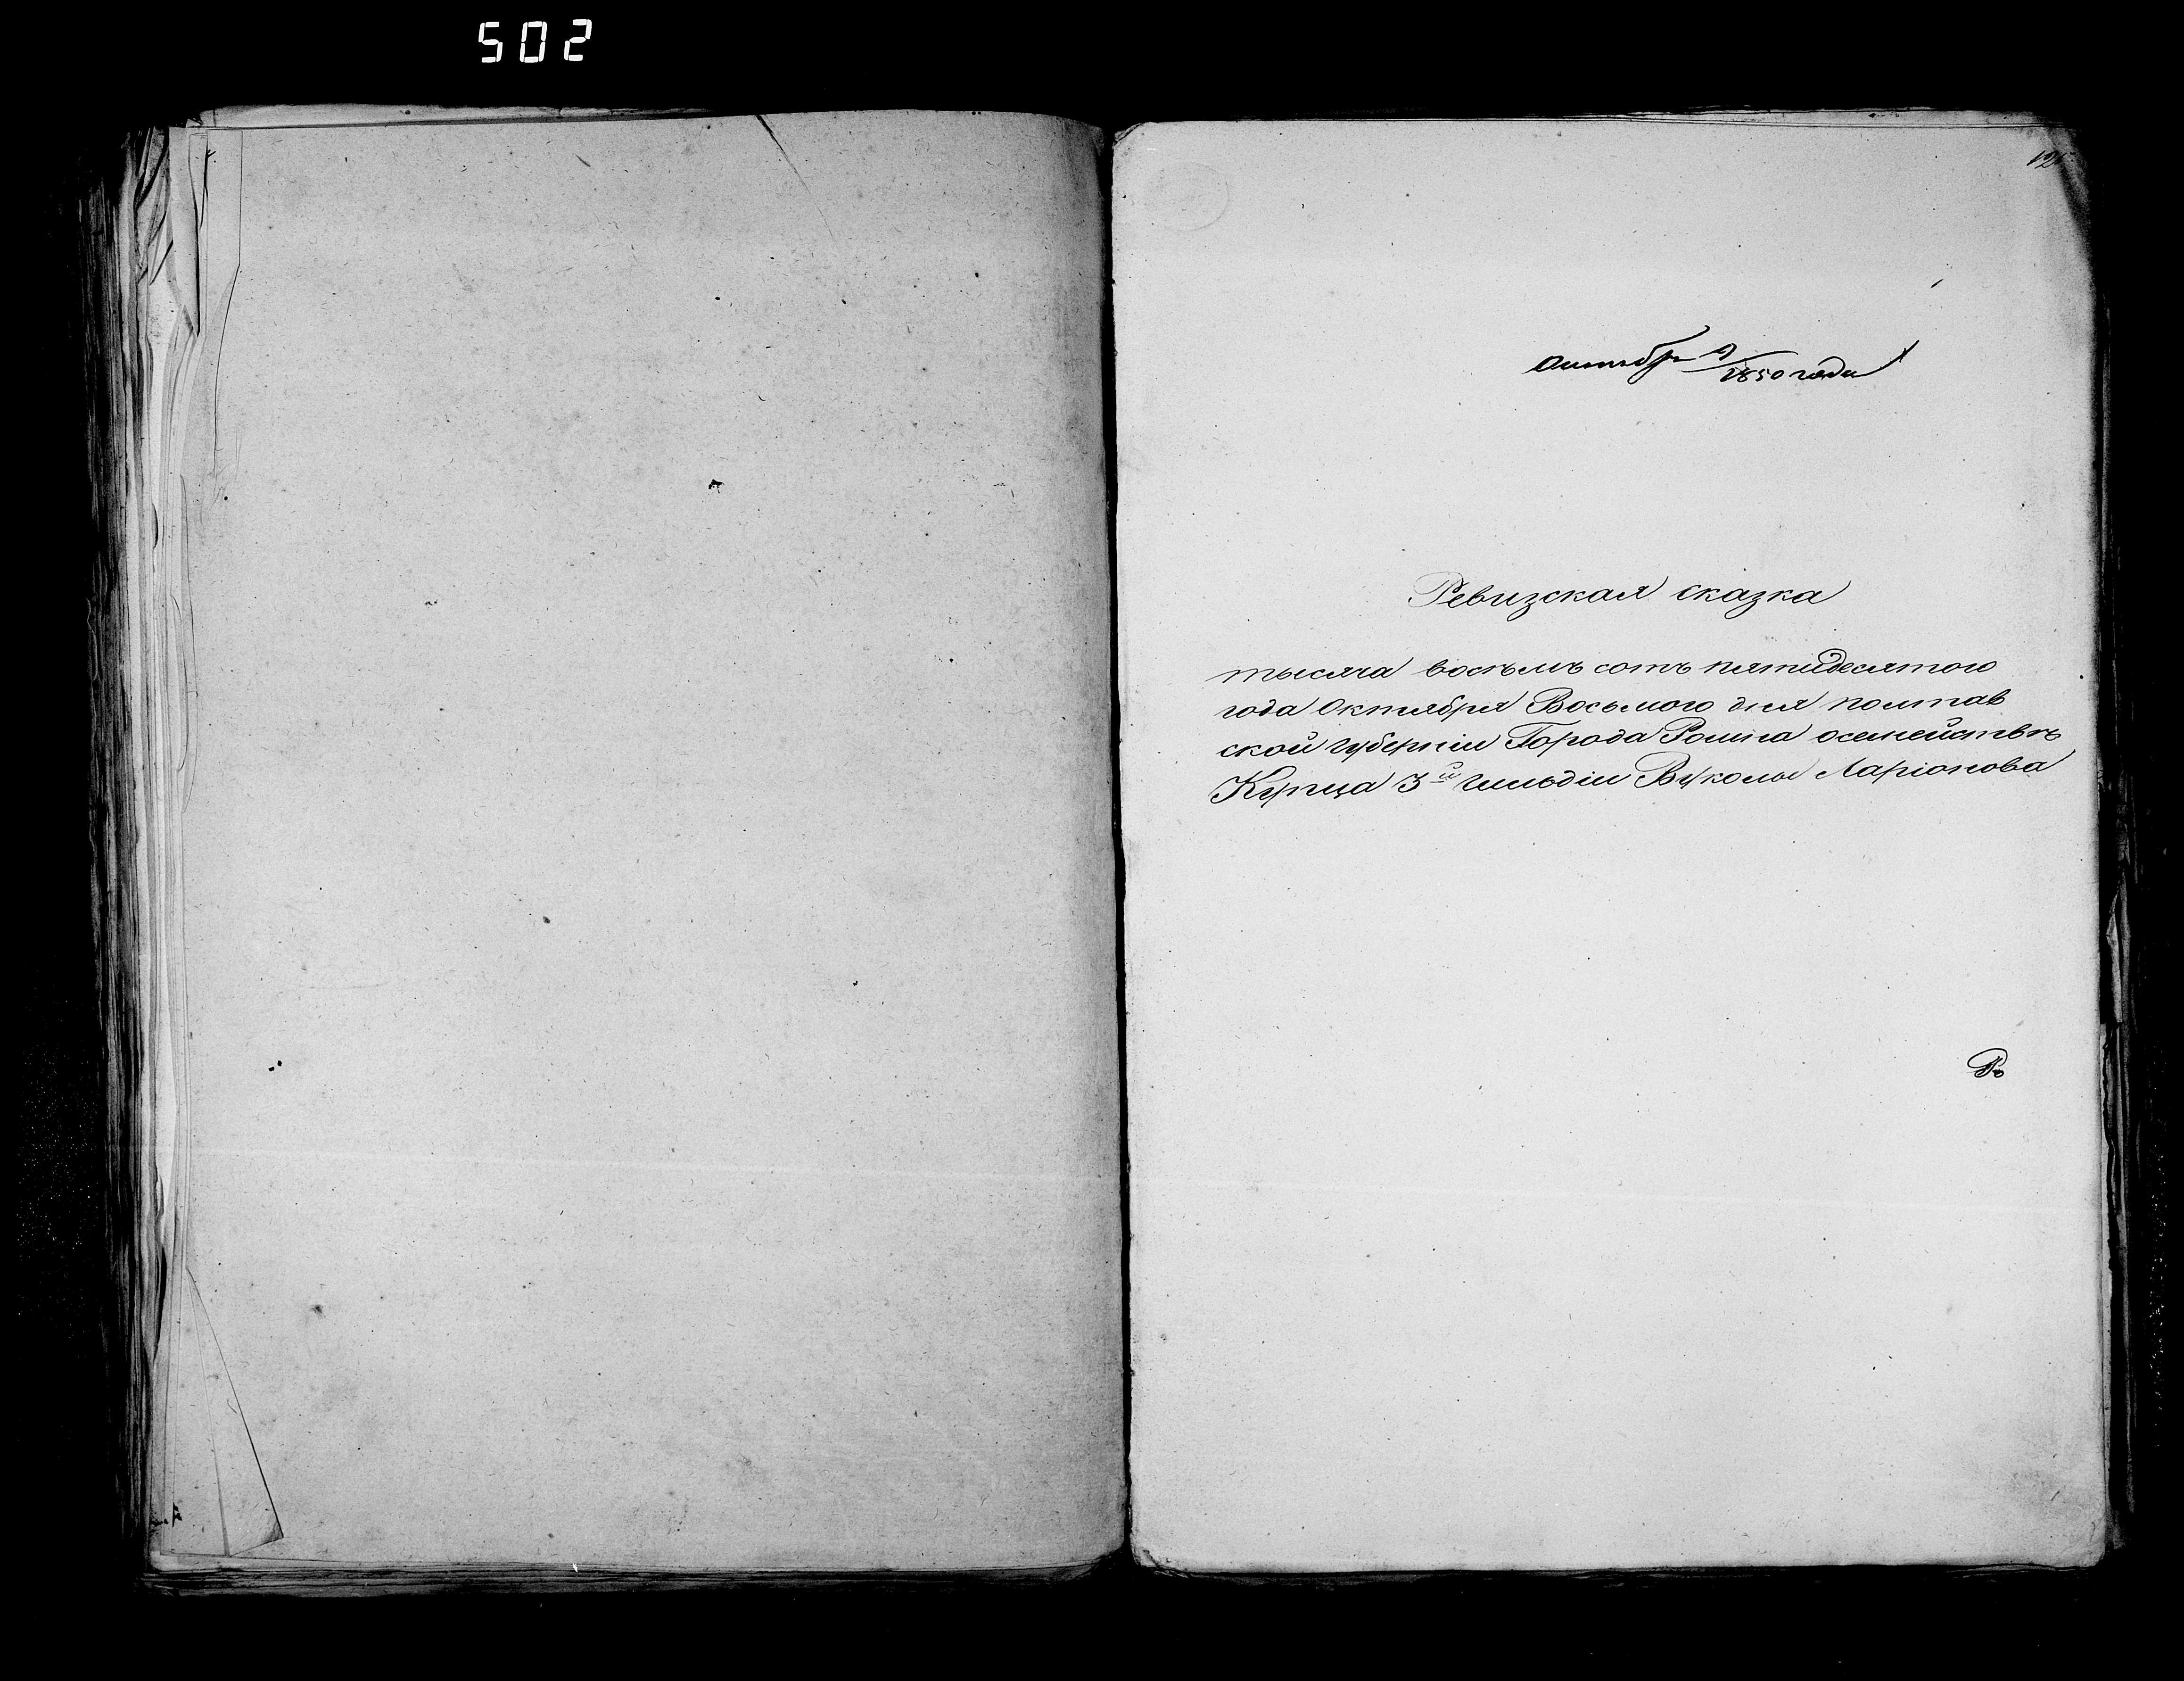 502
125
Октября 9/1850 года
Ревизская сказка
тысяча восъмъ сотъ пятидесятого
года Октября Восьмого дня полтав
ской губерніи Города Ромна осемействѣ
Купца 3й гильдіи Вуколы Ларіонова